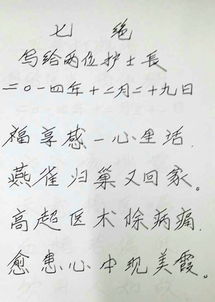 七绝
写给两位护士長
二〇一四年十二月二十九日
福享感一心里话.
燕雀归巢又回家。
高超医术除病痛.
愈患心中现美霞。